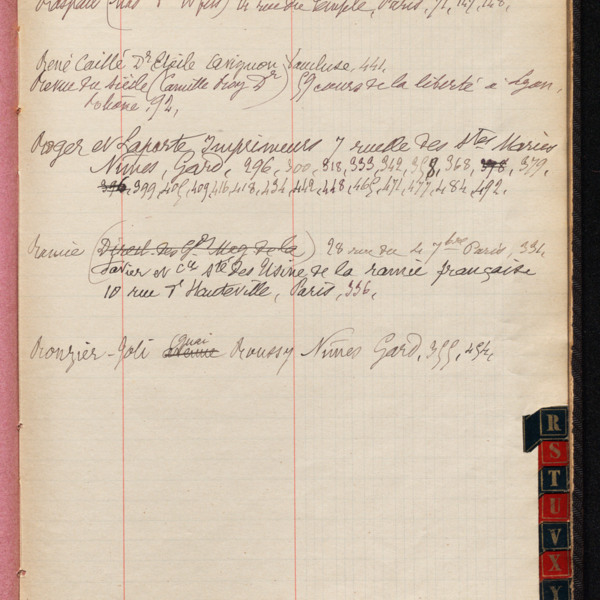 Raspail ( ) 14 rue du Temple, Paris, 71, 147, 148,
René Caillé Dr Etoile Avignon, Vaucluse, 441,
Revue du Siècle (Camille Roy Dr) 59 cours de la liberté a Lyon,
Rhone, 92,
Roger et Laporte Imprimeurs 7 ruelle des Stes Maries
Nîmes, Gard, 296, 300, 318, 333, 342, 358, 368, 378, 379,
396, 399, 405, 409, 416, 418, 434, 442, 448, 465, 471, 477, 484, 492,
Ramie (Direct. des Gds Mag. de la) 28 rue du 4 7bre Paris, 331,
Favier et Cie Sté des Usine de la ramie française
10 rue d'Hauteville, Paris, 336,
Ronzier-Joli quai Roussy Nîmes Gard, 355, 454,
R
S
T
U
V
X
Y